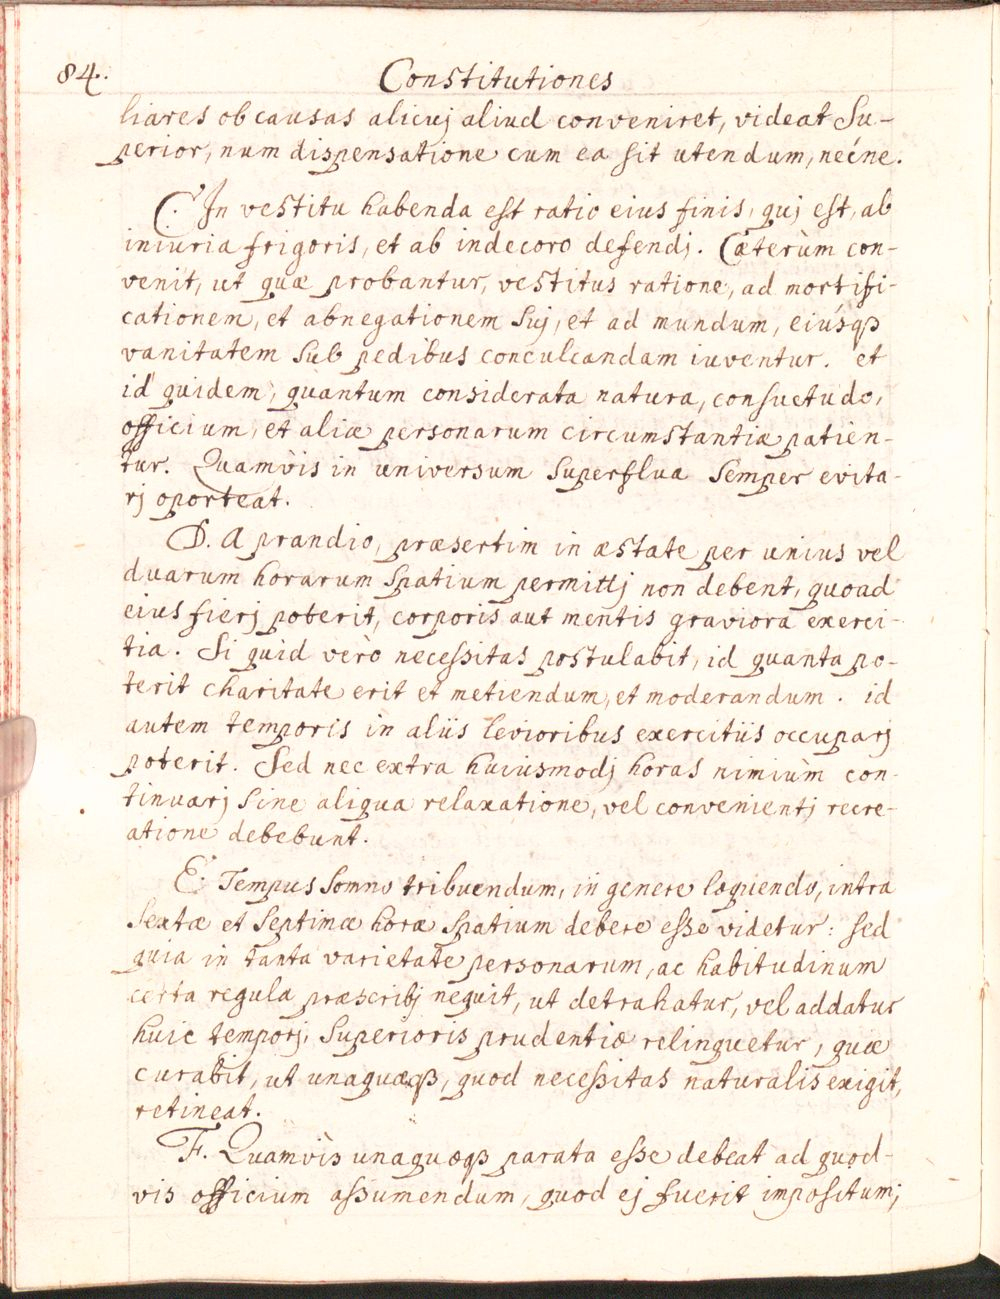 84.
Constitutiones
liares ob causas alicuj aliud conveniret, videat Su-
perior, num dispensatione cum ea sit utendum, neéne.
C. In vestitu habenda est ratio eius finis, quj est, ab
iniuria frigoris, et ab indecoro defendj. Cæterùm con-
venit, ut quæ probantur, vestitus ratione, ad mortifi-
cationem, et abnegationem suj, et ad mundum, eiúsqꝫ
vanitatem sub pedibus conculcandam iuventur. et
id quidem, quantum considerata natura, consuetudo,
officium, et aliæ personarum circumstantiæ patien-
tur. Quamvis in universum superflua semper evita-
rj oporteat.
D. A prandio, præsertim in æstate per unius vel
duarum horarum spatium permittj non debent, quoad
eius fierj poterit, corporis aut mentis graviora exerci-
tia. Si quid verò necessitas postulabit, id quanta po-
terit charitate erit et metiendum, et moderandum. id
autem temporis in aliis levioribus exercitiis occuparj
poterit. Sed nec extra huiusmodj horas nimiùm con-
tinuarj sine aliqua relaxatione, vel convenientj recre-
atione debebunt.
E. Tempus somno tribuendum, in genere loquendo, intra
sextæ et septimæ horæ spatium debere esse videtur: sed
quia in tanta varietate personarum, ac habitudinum
certa regula præscribj nequit, ut detrahatur, vel addatur
huic temporj, Superioris prudentiæ relinquetur, quæ
curabit, ut unaquæqꝫ, quod necessitas naturalis exigit,
retineat.
F. Quamvìs unaquæqꝫ parata esse debeat ad quod-
vis officium assumendum, quod ej fuerit impositum;